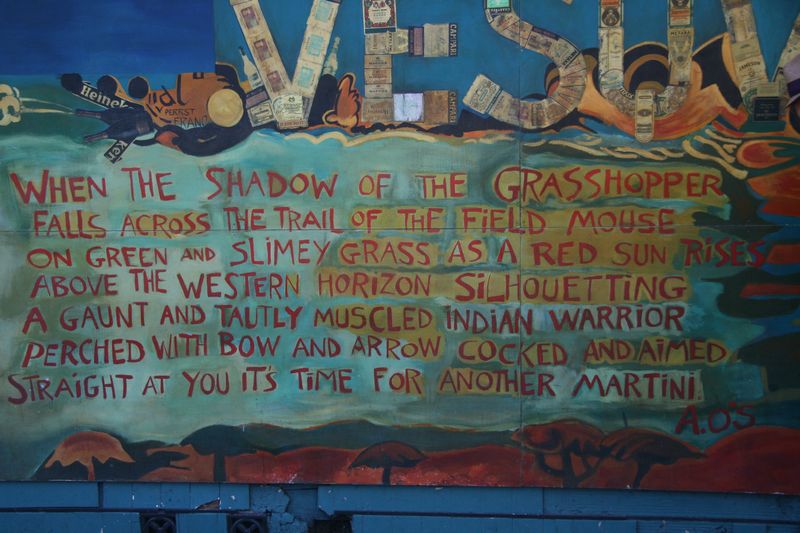 VESUV
CAMPARI
CAMPARI
Heineken
PERRST
FRANC
Ker
WHEN THE SHADOW OF THE GRASSHOPPER
FALLS ACROSS THE TRAIL OF THE FIELD MOUSE
ON GREEN AND SLIMEY GRASS AS A RED SUN RISES
ABOVE THE WESTERN HORIZON SILHOUETTING
A GAUNT AND TAUTLY MUSCLED INDIAN WARRIOR
PERCHED WITH BOW AND ARROW COCKED AND AIMED
STRAIGHT AT YOU IT'S TIME FOR ANOTHER MARTINI.
A.O'S